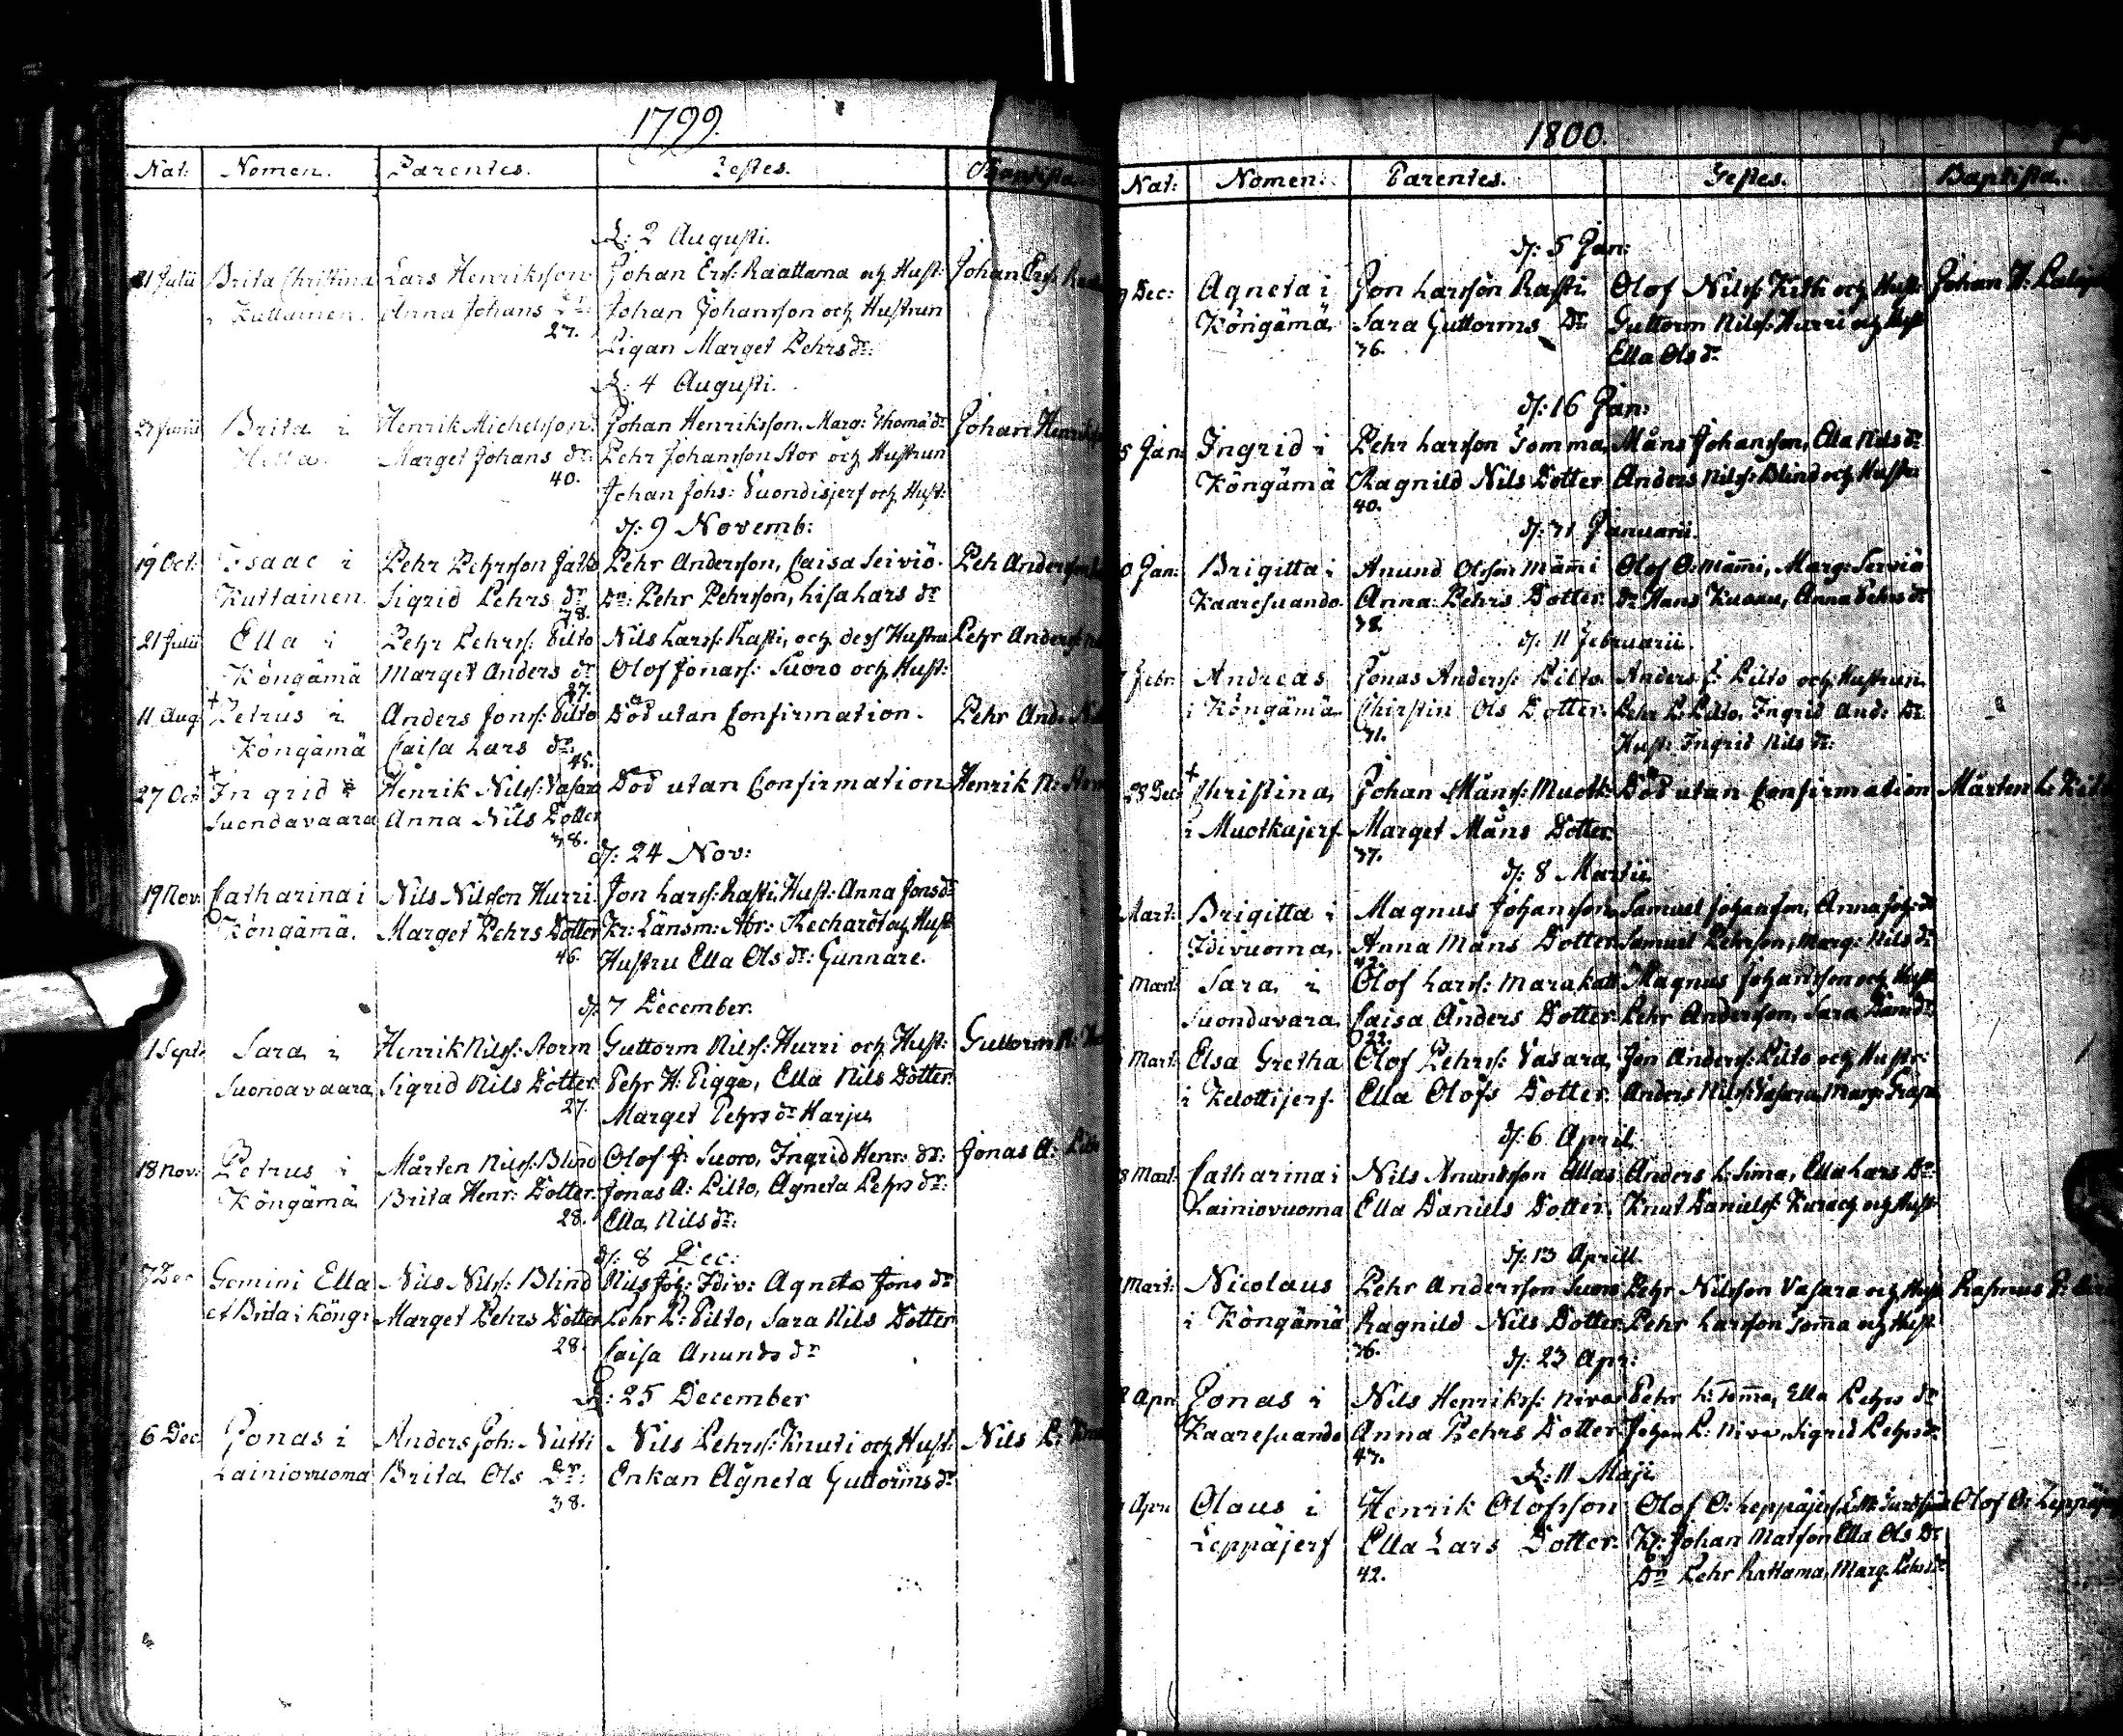 1799.
Nat: Nomen. Parentes. Testes.
D: 2 Augusti.
21 Julii Brita Christina Lars Henriksson Johan Ers: Raattama och Hust: Johan Ers:
i Kuttainen. Anna Johans Dr: Johan Johansson och Hustrun
27. Pigan Marget Pehrs dr:
D: 4 Augusti.
Brita i Henrik Michelsson. Johan Henriksson, Marg: Thomæ dr Johan
Marget Johans dr: Pehr Johansson Stor och Hustrun
40. Johan Johs: Vuondisjerf och Hust:
d: 9 Novemb:
19 Oct: Isaac i Pehr Pehrsson Pehr Andersson, Caisa Seiviö. Peh Andersson
Kuttainen Sigrid Pehrs dr Dr: Pehr Pehrsson, Lisa Lars dr
38.
21 Julii Ella i Pehr Pehrs: Pilto Nils Larss: Rasti, och dess Hustru Pehr Anders
Köngämä Marget Anders dr Olof Jonass: Suoro och Hust:
37.
11 Aug + Petrus i Anders Jons: Pilto Död utan Confirmation. Pehr And:
Köngämä Caisa Lars dr.
45.
27 Oct + Ingrid i Henrik Nilss: Vasara Död utan Confirmation Henrik N:
Suondavaara Anna Nils Dotter
38.
d: 24 Nov:
19 Nov: Catharina i Nils Nilsson Hurri. Jon Larss: Rasti, Hust: Anna Jons dr
Köngämä. Marget Pehrs Dotter Kr: Länsm: Abr: Kechardt och Hust
46. Hustru Ella Ols dr: Gunnare.
d: 7 December.
1 Sept: Sara i Henrik Nilss: Storm Guttorm Nilss: Hurri och Hust: Guttorm N:
Suondavaara Sigrid Nils Dotter. Pehr H: Pigga, Ella Nils Dotter.
27. Marget Pehrs dr Harju
18 Nov: Petrus i Mårten Nilss: Blind Olof J: Suoro, Ingrid Henr: dr: Jonas A:
Köngämä Brita Henr: Dotter. Jonas A: Pilto, Agneta Pehrs dr:
28. Ella Nils dr:
d: 8 Dec:
7 Dec Gemini Ella Nils Nilss: Blind Nils Joh: Idiv: Agneta Jons dr
et Brita i Köng: Marget Pehrs Dotter Pehr P: Pilto, Sara Nils Dotter
28. Caisa Anunds dr
D: 25 December
6 Dec Jonas i Anders Joh: Nutti Nils Pehrss: Knuti och Hust: Nils P:
Lainiovuoma Brita Ols Dr: Enkan Agneta Guttorms dr
38.
1800.
Nat: Nomen. Parentes. Testes. Baptista.
d: 5 Jan:
Dec: Agneta i Jon Larsson Rasti Olof Nilss: Kitk och Hust: Johan
Köngämä Sara Guttorms Dr Guttorm Nilss: Hurri och Hust
36. Ella Ols dr
d: 16 Jan:
5 Jan: Ingrid i Pehr Larsson Tomma, Måns Johansson, Ella Nils dr
Köngämä Ragnild Nils Dotter Anders Nilss: Blind och Hustru
40.
d: 31 Januarii.
Jan: Brigitta i Anund Olsson Mämi Olof O: Mämi, Marg: Serviö
Kaaresuando. Anna Pehrs Dotter. Dr Hans Anna Pehrs dr
38.
d: 11 Februarii.
Febr: Andreas Jonas Anderss: Pilto Anders J: Pilto och Hustrun
i Köngämä Chirstin Ols Dotter. Pehr P: Pilto, Ingrid And: Dr
31. Hust: Ingrid Nils dr:
23 Dec + Christina Johan Månss: Muotk: Död utan Confirmation Mårten L:
i Muotkajerf Marget Måns Dotter.
37.
d: 8 Martii
Mart: Brigitta i Magnus Johansson Samuel Johansson, Anna Joh: dr
Idivuoma. Anna Måns Dotter Samuel Pehrsson, Marg: Nils dr
42.
Mart: Sara i Olof Larss: Marakatt Magnus Johansson och Hust
Suondavara Caisa Anders Dotter. Pehr Andersson, Sara dr
22.
Mart: Elsa Gretha Olof Pehrss: Vasara, Jon Anderss: Pilto och Hustr:
i Kelottijerf. Ella Olofs Dotter. Anders Nilss: Vasara, Marg:
d: 6 April.
8 Mart: Catharina i Nils Anundsson Allas Anders L: Sima, Ella Lars Dr:
Lainiovuoma Ella Daniels Dotter. Knut Danielss: och Hust
d: 13 Aprill
Mart: Nicolaus Pehr Andersson Suoro Pehr Nilsson Vasara och Hust Rasmus P:
i Köngämä Ragnild Nils Dotter. Pehr Larsson Tomma och Hust
36.
d: 23 Apr:
Apr: Jonas i Nils Henrikss: Niva Pehr L: Tomma, Ella Pehrs dr
Kaaresuando Anna Pehrs Dotter. Johan P: Niva, Sigrid Pehrs dr
43.
D: 11 Maji
Apr: Olaus i Henrik Olofsson Olof O: Leppäjerf, Olof O: Leppäj
Leppäjerf Ella Lars Dotter. Johan Matsson Ella Ols Dr
42. Dr Pehr Rattama, Marg: Pehrs dr